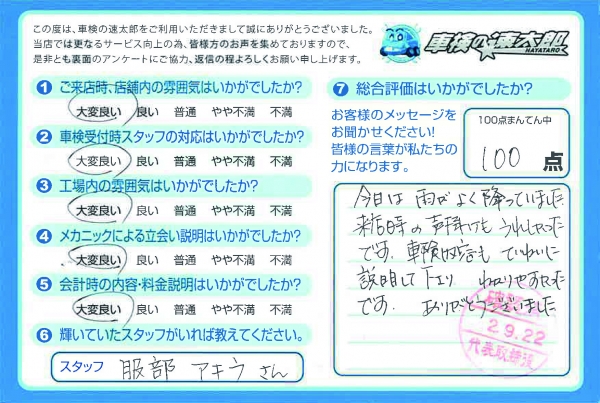 この度は、車検の速太郎をご利用いただきまして誠にありがとうございました。
当店では更なるサービス向上の為、皆様方のお声を集めておりますので、
是非とも裏面のアンケートにご協力、返信の程よろしくお願い申し上げます。
車検の速太郎
HAYATARO
1 ご来店時、店舗内の雰囲気はいかがでしたか?
大変良い 良い 普通 やや不満 不満
2 車検受付時スタッフの対応はいかがでしたか?
大変良い 良い 普通 やや不満 不満
3 工場内の雰囲気はいかがでしたか?
大変良い 良い 普通 やや不満 不満
4 メカニックによる立会い説明はいかがでしたか?
大変良い 良い 普通 やや不満 不満
5 会計時の内容・料金説明はいかがでしたか?
大変良い 良い 普通 やや不満 不満
6 輝いていたスタッフがいれば教えてください。
スタッフ 服部 アキラ さん
7 総合評価はいかがでしたか?
お客様のメッセージを
お聞かせください!
皆様の言葉が私たちの
力になります。
100点まんてん中
100 点
今日は雨がよく降っていました
来店時の声掛けもうれしかった
です。車検内容もていねいに
説明して下さり わかりやすかった
です。ありがとうございました
2 9. 22
代表取締役